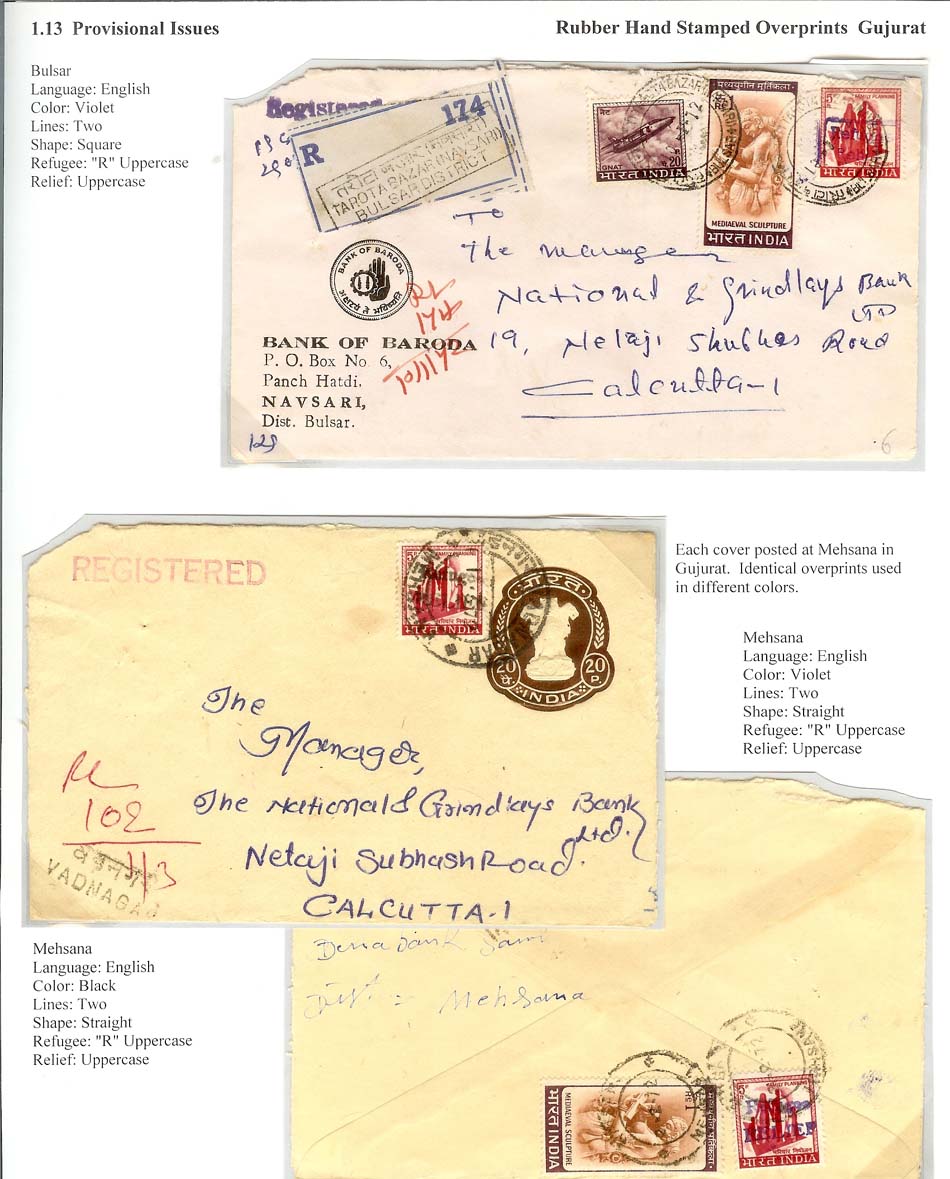 1.13 Provisional Issues
Rubber Hand Stamped Overprints Gujurat
Bulsar
Language: English
Color: Violet
Lines: Two
Shape: Square
Refugee: "R" Uppercase
Relief: Uppercase
Registered
R
174
तरोटा बाजार (नवसारी)
TAROTA BAZAR (NAVSARI)
BULSAR DISTRICT
नेट
GNAT
20
भारत INDIA
मध्ययुगीन मूर्तिकला
MEDIAEVAL SCULPTURE
भारत INDIA
5
FAMILY PLANNING
भारत INDIA
BANK OF BARODA
BANK OF BARODA
P. O. Box No 6,
Panch Hatdi,
NAVSARI,
Dist. Bulsar.
RL
174
To
The Manager
National & Grindlays Bank
LTD
19, Netaji Shubhas Road
Calcutta-1
129
6
REGISTERED
5
FAMILY PLANNING
परिवार नियोजन
भारत INDIA
भारत
20 पै.
20 P.
INDIA
The
Manager,
The National & Grindlays Bank
Ltd.
Netaji Subhash Road.
CALCUTTA-1
RL
102
113
वडनगर
VADNAGAR
Each cover posted at Mehsana in
Gujurat. Identical overprints used
in different colors.
Mehsana
Language: English
Color: Violet
Lines: Two
Shape: Straight
Refugee: "R" Uppercase
Relief: Uppercase
Mehsana
Language: English
Color: Black
Lines: Two
Shape: Straight
Refugee: "R" Uppercase
Relief: Uppercase
Dena Bank
Dist = Mehsana
भारत INDIA
MEDIAEVAL SCULPTURE
मध्ययुगीन मूर्तिकला
5
FAMILY PLANNING
परिवार नियोजन
भारत INDIA